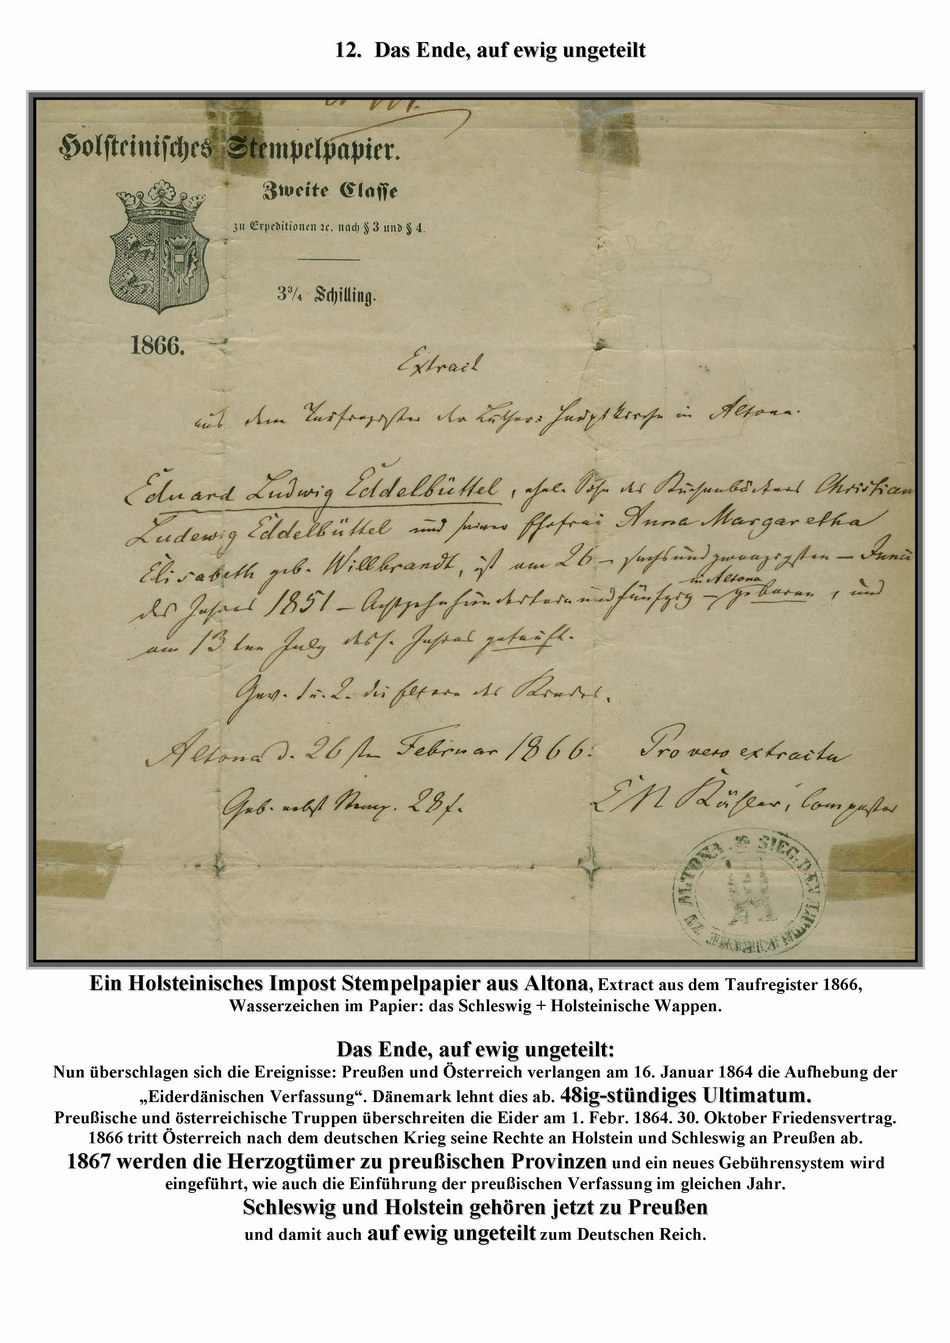 12. Das Ende, auf ewig ungeteilt
Holsteinisches Stempelpapier.
Zweite Classe
zu Expeditionen ꝛc. nach § 3 und § 4.
3¾ Schilling.
1866.
Extract
aus dem Taufregister der Luther: Hauptkirche in Altona.
Eduard Ludwig Eddelbüttel, ehel. Sohn des Christian
Ludewig Eddelbüttel und seiner Ehefrau Anna Margaretha
Elisabeth geb. Willbrandt, ist am 26 – sechsundzwanzigsten – Junii
in Altona
des Jahres 1851 – Achtzehnhundert einundfünfzig – geboren, und
am 13ten July dess. Jahres getauft.
Gev. 1 u. 2. die Eltern des Kindes.
Altona d. 26sten Februar 1866. Pro vero extractu
Geb. nebst Stemp. 28 ſ. Compastor
SIEG. D. EV. ZU ALTONA
Ein Holsteinisches Impost Stempelpapier aus Altona, Extract aus dem Taufregister 1866,
Wasserzeichen im Papier: das Schleswig + Holsteinische Wappen.
Das Ende, auf ewig ungeteilt:
Nun überschlagen sich die Ereignisse: Preußen und Österreich verlangen am 16. Januar 1864 die Aufhebung der
„Eiderdänischen Verfassung“. Dänemark lehnt dies ab. 48ig-stündiges Ultimatum.
Preußische und österreichische Truppen überschreiten die Eider am 1. Febr. 1864. 30. Oktober Friedensvertrag.
1866 tritt Österreich nach dem deutschen Krieg seine Rechte an Holstein und Schleswig an Preußen ab.
1867 werden die Herzogtümer zu preußischen Provinzen und ein neues Gebührensystem wird
eingeführt, wie auch die Einführung der preußischen Verfassung im gleichen Jahr.
Schleswig und Holstein gehören jetzt zu Preußen
und damit auch auf ewig ungeteilt zum Deutschen Reich.